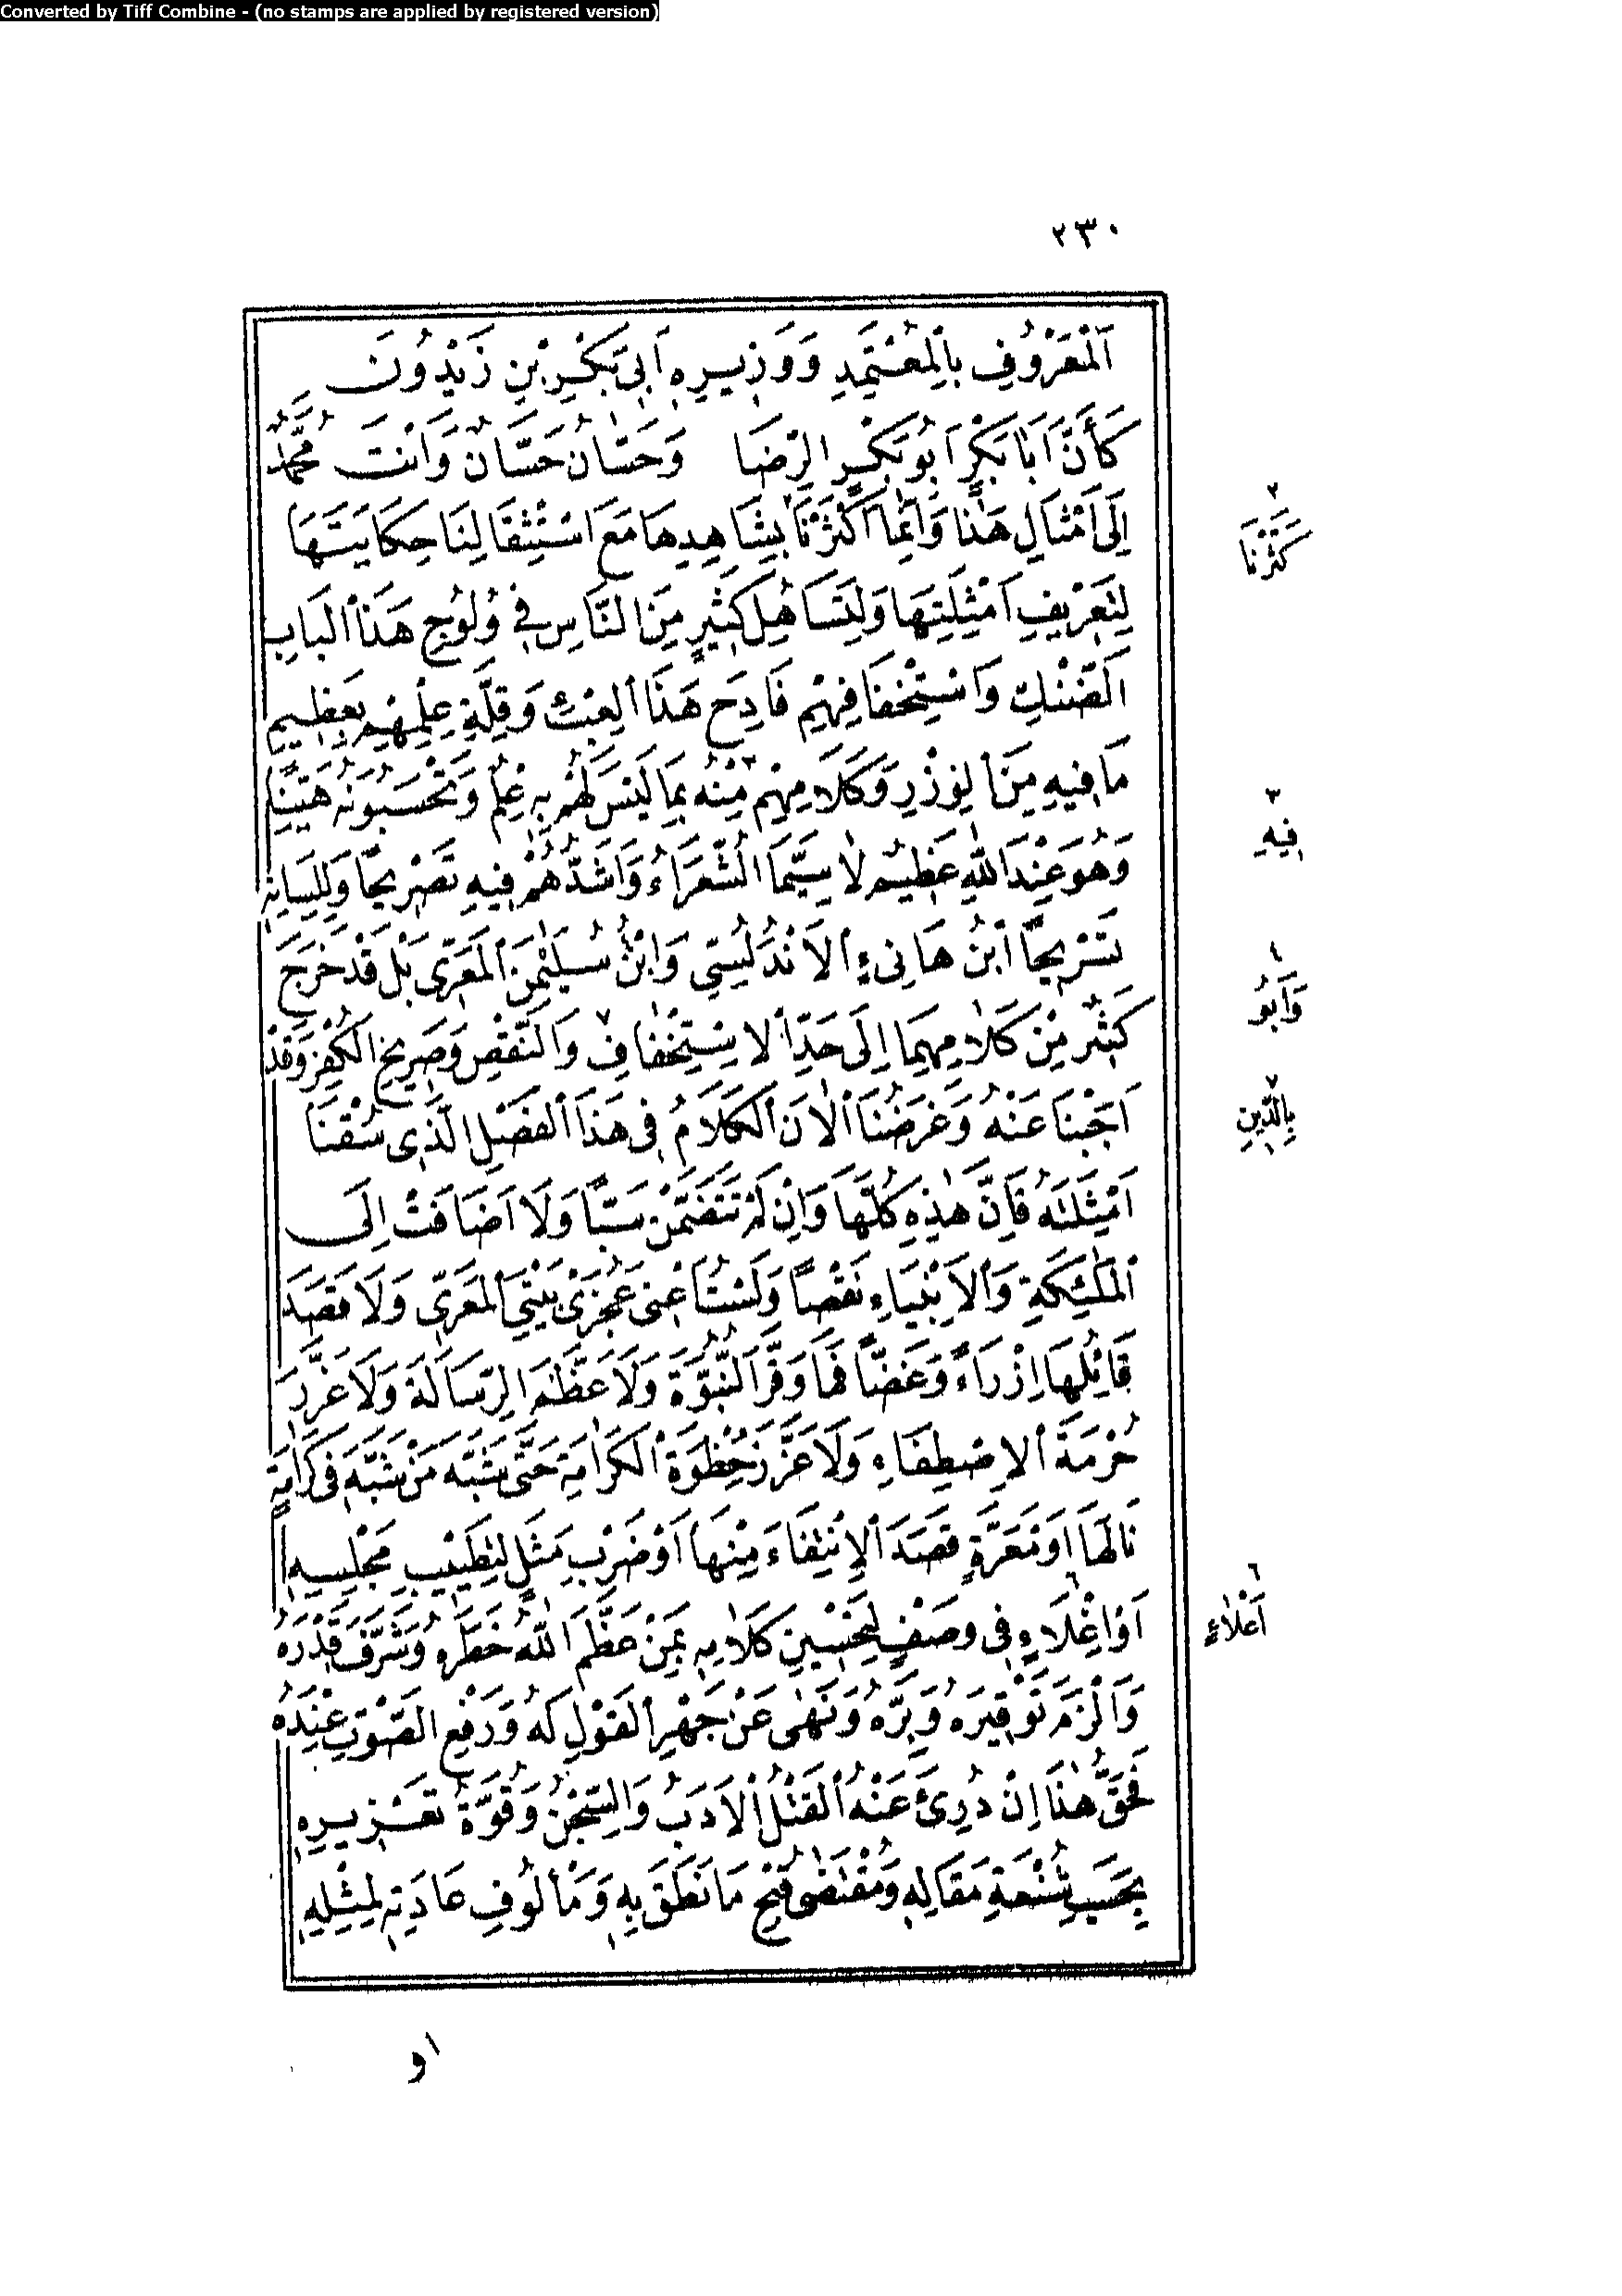 Converted by Tiff Combine - (no stamps are applied by registered version)
٢٣٠
اَلْمَعْرُوفِ بِالْمُعْتَمِدِ وَوَزِيرِهِ اَبِى بَكْرِ بْنِ زَيْدُونَ
كَأَنَّ اَبَا بَكْرٍ اَبُو بَكْرٍ الرِّضَا وَحَسَّانُ حَسَّانٌ وَاَنْتَ مُحَمَّدُ
اِلَى اَمْثَالِ هٰذَا وَاِنَّمَا اَكْثَرْنَا بِشَاهِدِهَا مَعَ اسْتِثْقَالِنَا حِكَايَتَهَا
لِتَعْرِيفِ اَمْثِلَتِهَا وَلِتَسَاهُلِ كَثِيرٍ مِنَ النَّاسِ فِى وُلُوجِ هَذَا الْبَابِ
الضَّنْكِ وَاسْتِخْفَافِهِمْ فَادِحَ هَذَا الْعِبْئِ وَقِلَّةِ عِلْمِهِمْ بِعَظِيمِ
مَا فِيهِ مِنَ الْوِزْرِ وَكَلَامِهِمْ مِنْهُ بِمَا لَيْسَ لَهُمْ بِهِ عِلْمٌ وَيَحْسَبُونَهُ هَيِّنًا
وَهُوَ عِنْدَ اللهِ عَظِيمٌ لَا سِيَّمَا الشُّعَرَاءُ وَاَشَدُّهُمْ فِيهِ تَصْرِيحًا وَلِلِسَانِهِ
تَسْرِيحًا ابْنُ هَانِىءٍ الْاَنْدَلُسِىُّ وَابْنُ سُلَيْمٰنَ الْمَعَرِّىُّ بَلْ قَدْ خَرَجَ
كَثِيرٌ مِنْ كَلَامِهِمَا اِلَى حَدِّ الْاِسْتِخْفَافِ وَالنَّقْصِ وَصَرِيحِ الْكُفْرِ وَقَدْ
اَجَبْنَا عَنْهُ وَغَرَضُنَا الْاٰنَ الْكَلَامُ فِى هَذَا الْفَصْلِ الَّذِى سُقْنَا
اَمْثِلَتَهُ فَاِنَّ هٰذِهِ كُلَّهَا وَاِنْ لَمْ تَتَضَمَّنْ سَبًّا وَلَا اَضَافَتْ اِلَى
الْمَلٰئِكَةِ وَالْاَنْبِيَاءِ نَقْصًا وَلَسْتُ اَعْنِى عَجُزَىْ بَيْتَىِ الْمَعَرِّىِّ وَلَا قَصَدَ
قَائِلُهَا اِزْرَاءً وَغَضًّا فَمَا وَقَّرَ النُّبُوَّةَ وَلَا عَظَّمَ الرِّسَالَةَ وَلَا عَزَّرَ
حُرْمَةَ الْاِصْطِفَاءِ وَلَا عَزَّزَ حُظْوَةَ الْكَرَامَةِ حَتَّى شَبَّهَ مَنْ شَبَّهَ فِى كَرَامَةٍ
نَالَهَا اَوْ مَعَرَّةٍ قَصَدَ الْاِنْتِفَاءَ مِنْهَا اَوْ ضَرْبِ مَثَلٍ لِتَطْيِيبِ مَجْلِسِهِ
اَوْ اِغْلَاءٍ فِى وَصْفٍ لِتَحْسِينِ كَلَامِهِ بِمَنْ عَظَّمَ اللهُ خَطَرَهُ وَشَرَّفَ قَدْرَهُ
وَاَلْزَمَ تَوْقِيرَهُ وَبِرَّهُ وَنَهٰى عَنْ جَهْرِ الْقَوْلِ لَهُ وَرَفْعِ الصَّوْتِ عِنْدَهُ
فَحَقُّ هٰذَا اِنْ دُرِئَ عَنْهُ الْقَتْلُ الْاَدَبُ وَالسِّجْنُ وَقُوَّةُ تَعْزِيرِهِ
بِحَسَبِ شُنْعَةِ مَقَالِهِ وَمُقْتَضٰى قُبْحِ مَا نَطَقَ بِهِ وَمَأْلُوفِ عَادَتِهِ لِمِثْلِهِ
٢
كَثَّرْنَا
٣
فِيهِ
٤
وَاَبُو
٧
بِالدِّينِ
٦
اَعْلَاءٍ
او